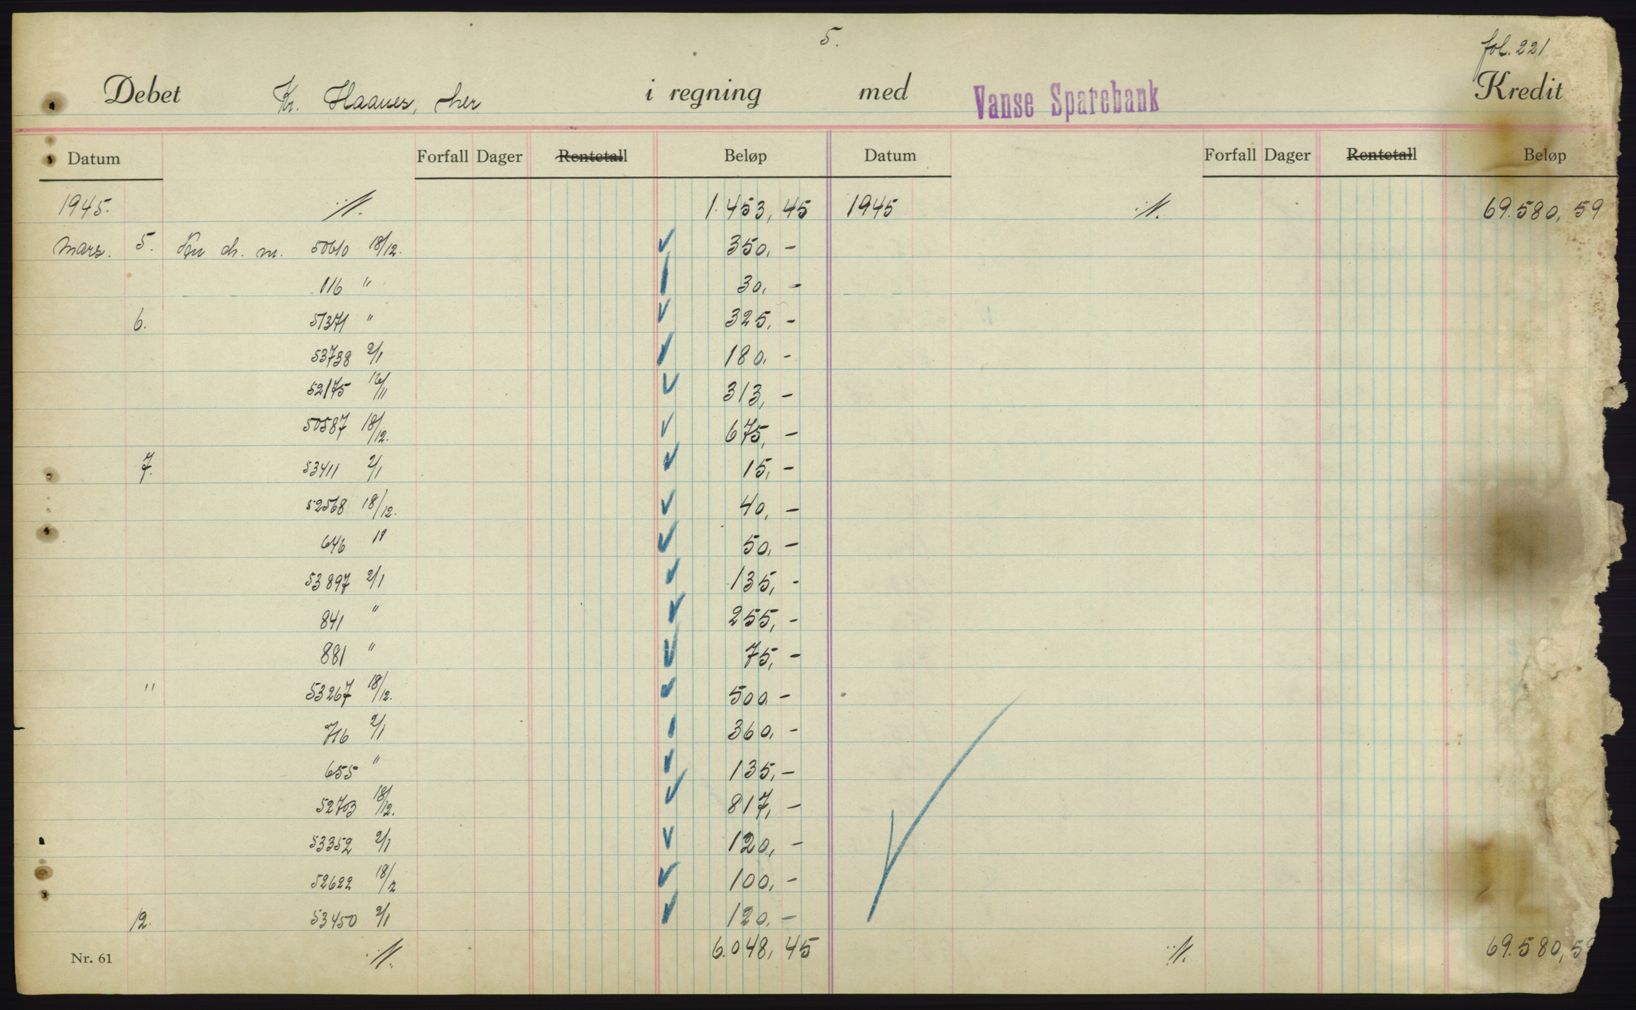 5.
fol. 221
Debet Kr. Haanes, her i regning med Vanse Sparebank Kredit
Datum Forfall Dager Rentetall Beløp Datum Forfall Dager Rentetall Beløp
1945. 1.453,45 1945 69.580,59
Mars. 5. ch. nr. 50610 18/12. 350,-
116 " 30,-
6. 51371 " 325,-
53738 2/1 180,-
52175 16/11 313,-
50587 18/12. 675,-
7. 53411 2/1 15,-
52568 18/12. 40,-
646 " 50,-
53897 2/1 135,-
841 " 255,-
881 " 75,-
" 53267 18/12. 500,-
716 2/1 360,-
655 " 135,-
52703 18/12. 817,-
53352 2/1 120,-
52622 18/12 100,-
12. 53450 2/1 120,-
Nr. 61 6.048,45 69.580,59